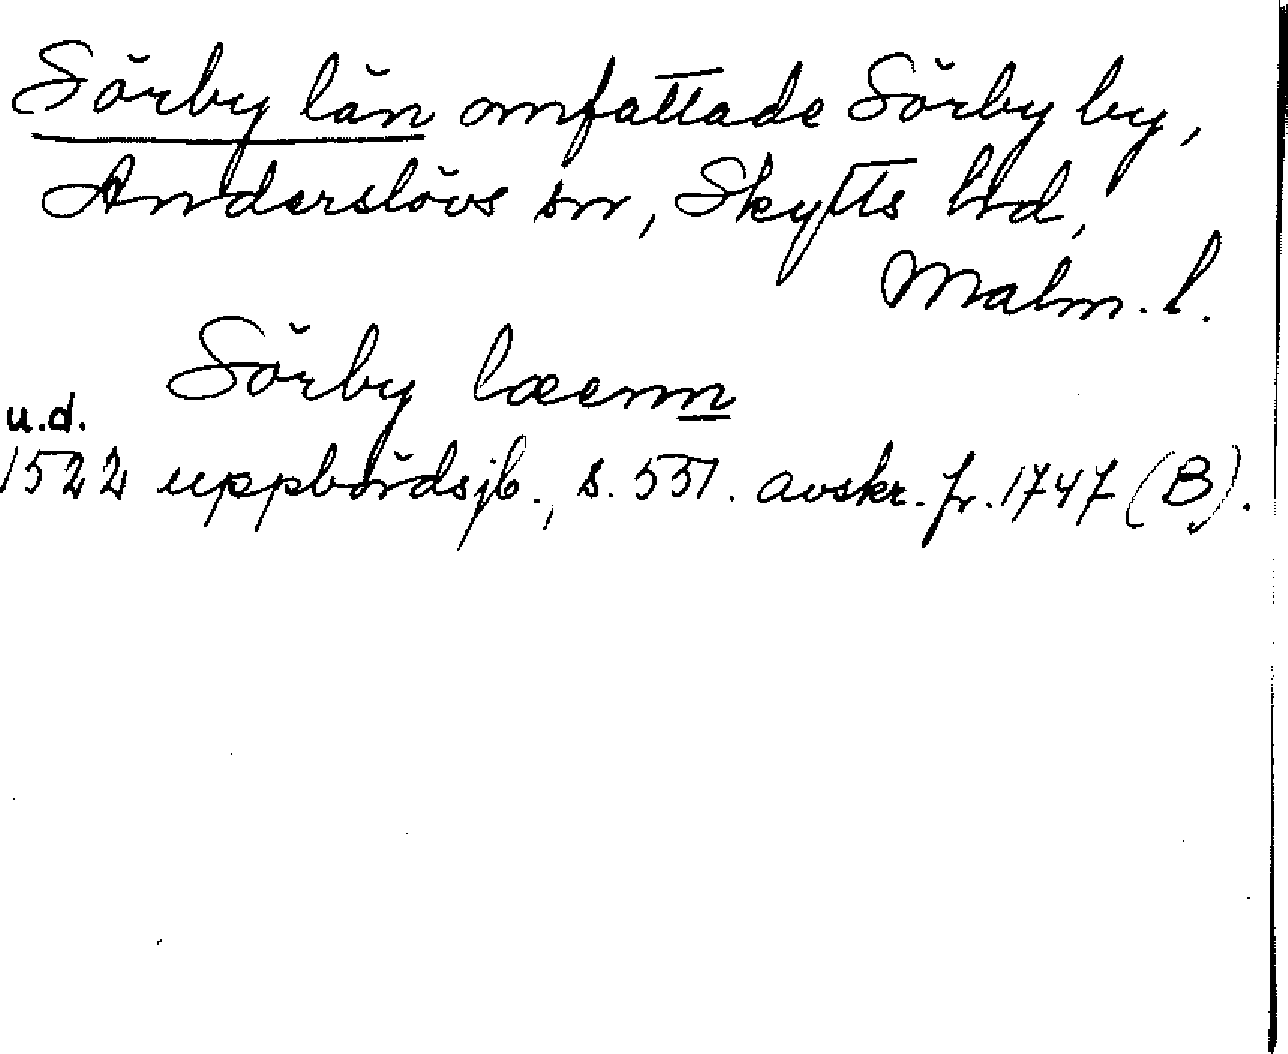 Sörby län omfattade Sörby by,
Anderslövs sn, Skytts hd,
Malm. l.
Sörby læenn
u.d.
1522 uppbördsjb., s. 551. avskr. fr. 1747 (B).